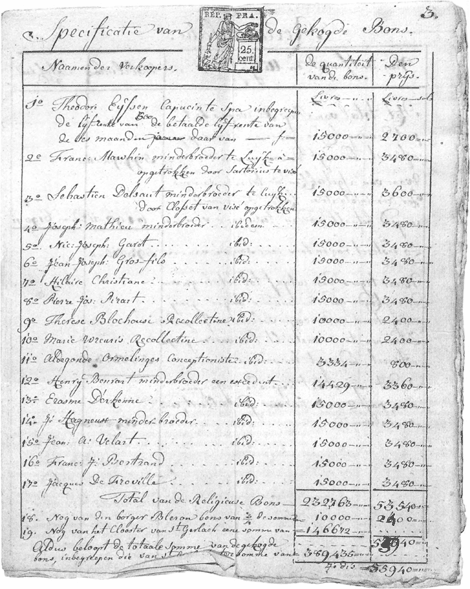 3.
Specificatie van de Gekogde Bons.
REP. FRA.
25
cent
Naamen der Verkoopers. de quantiteit van de bons. Den prijs.
Livres Livres
1o Theodon Eyssen Capucin te Spa inbegrepen
de lijfrente van de betaalde lijfrente van
ses maanden daar van 15000 2700
2o Franc: Mawhin minderbroeder te Luyk
opgetrokken door Sartorius te visé 15000 3480
3o Sebastien minderbroeder te Luyk
door van visé opgetrokken 15000 3600
4o Joseph: Mathieu minderbroeder ibidem 15000 3480
5o Nic: Joseph: Garot ibid: 15000 3480
6o Jean Joseph: Gros-fils ibid: 15000 3480
7o Hilaire Christiane ibid: 15000 3480
8o Pierre Jos: ibid: 15000 3480
9o Therese Blochouse Recollectine ibid: 10000 2400
10o Marie Recollectine ibid: 10000 2400
11o Aldegonde Ormelinges Conceptioniste ibid: 3334 800
12o Henry Bonvart minderbroeder een 14429 3360
13o Erasme ibid: 15000 3480
14o J: minderbroeder ibid: 15000 3480
15o Jean A: Velart ibid: 15000 3480
16o Franc: J: Bertrand ibid: 15000 3480
17o Jacques de Froville ibid: 15000 3480
Total van de Religieuse Bons 232763 53540
18. Nog van den borger Bleron bons van 10000 2400
19. Nog van het Clooster van St Gerlach eene somm van 146672
Aldus beloopt de totaale somme van de gekogde
bons, inbegrepen die van St 389436
55940